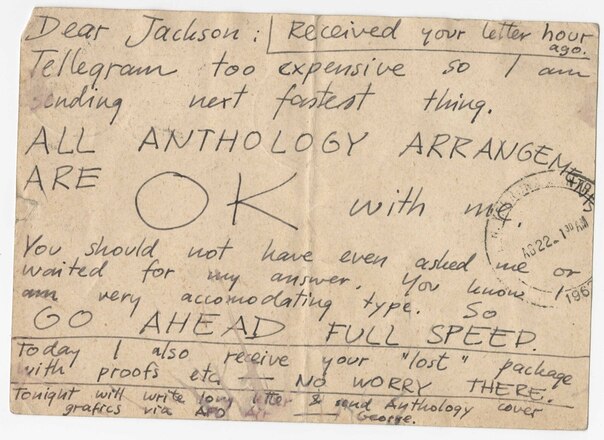 Dear Jackson: Received your letter hour
ago.
Tellegram too expensive so I am
sending next fastest thing.
ALL ANTHOLOGY ARRANGEMENTS
ARE OK with me.
You should not have even asked me or
waited for my answer. You know I
am very accomodating type. So
GO AHEAD FULL SPEED.
Today I also receive your "lost" package
with proofs etc — NO WORRY THERE.
Tonight will write long letter & send Anthology cover
grafics via APO Air — George.
AG22 -1 30 AM
196